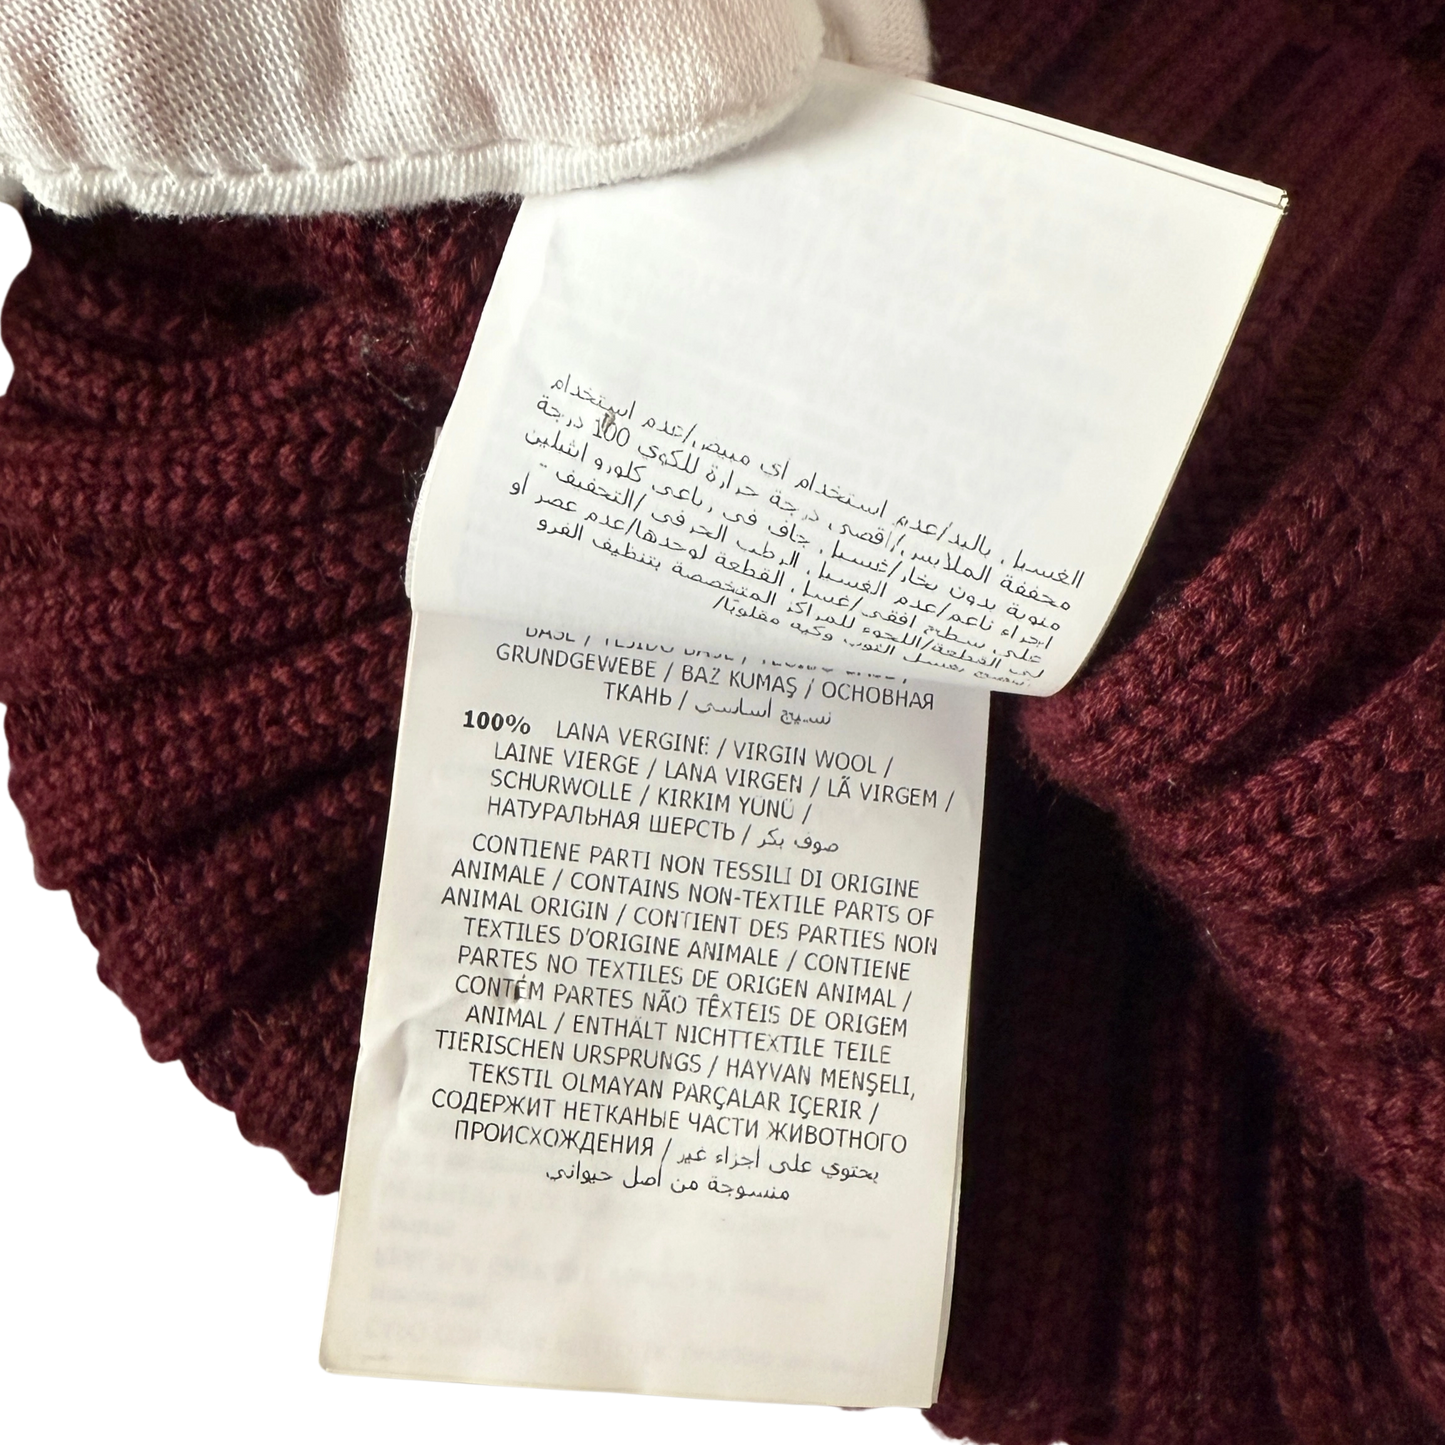 الغسيل باليد/عدم استخدام أي مبيض/عدم استخدام
مجففة الملابس/أقصى درجة حرارة للكوي 100 درجة
مئوية بدون بخار/غسيل جاف في رباعي كلورو اشلين
اجراء ناعم/عدم الغسيل الرطب الحرفي /التجفيف -
على سطح افقي/غسل القطعة لوحدها/عدم عصر او
لي القطعة/اللجوء للمراكز المتخصصة بتنظيف الفرو
بغسل الثوب وكيه مقلوبًا/
GRUNDGEWEBE / BAZ KUMAŞ / ОСНОВНАЯ
ТКАНЬ / نسيج أساسي
100% LANA VERGINE / VIRGIN WOOL /
LAINE VIERGE / LANA VIRGEN / LÃ VIRGEM /
SCHURWOLLE / KIRKIM YÜNÜ /
НАТУРАЛЬНАЯ ШЕРСТЬ / صوف بكر
CONTIENE PARTI NON TESSILI DI ORIGINE
ANIMALE / CONTAINS NON-TEXTILE PARTS OF
ANIMAL ORIGIN / CONTIENT DES PARTIES NON
TEXTILES D'ORIGINE ANIMALE / CONTIENE
PARTES NO TEXTILES DE ORIGEN ANIMAL /
CONTÉM PARTES NÃO TÊXTEIS DE ORIGEM
ANIMAL / ENTHÄLT NICHTTEXTILE TEILE
TIERISCHEN URSPRUNGS / HAYVAN MENŞELİ,
TEKSTIL OLMAYAN PARÇALAR IÇERIR /
СОДЕРЖИТ НЕТКАНЫЕ ЧАСТИ ЖИВОТНОГО
ПРОИСХОЖДЕНИЯ / يحتوي على أجزاء غير
منسوجة من أصل حيواني